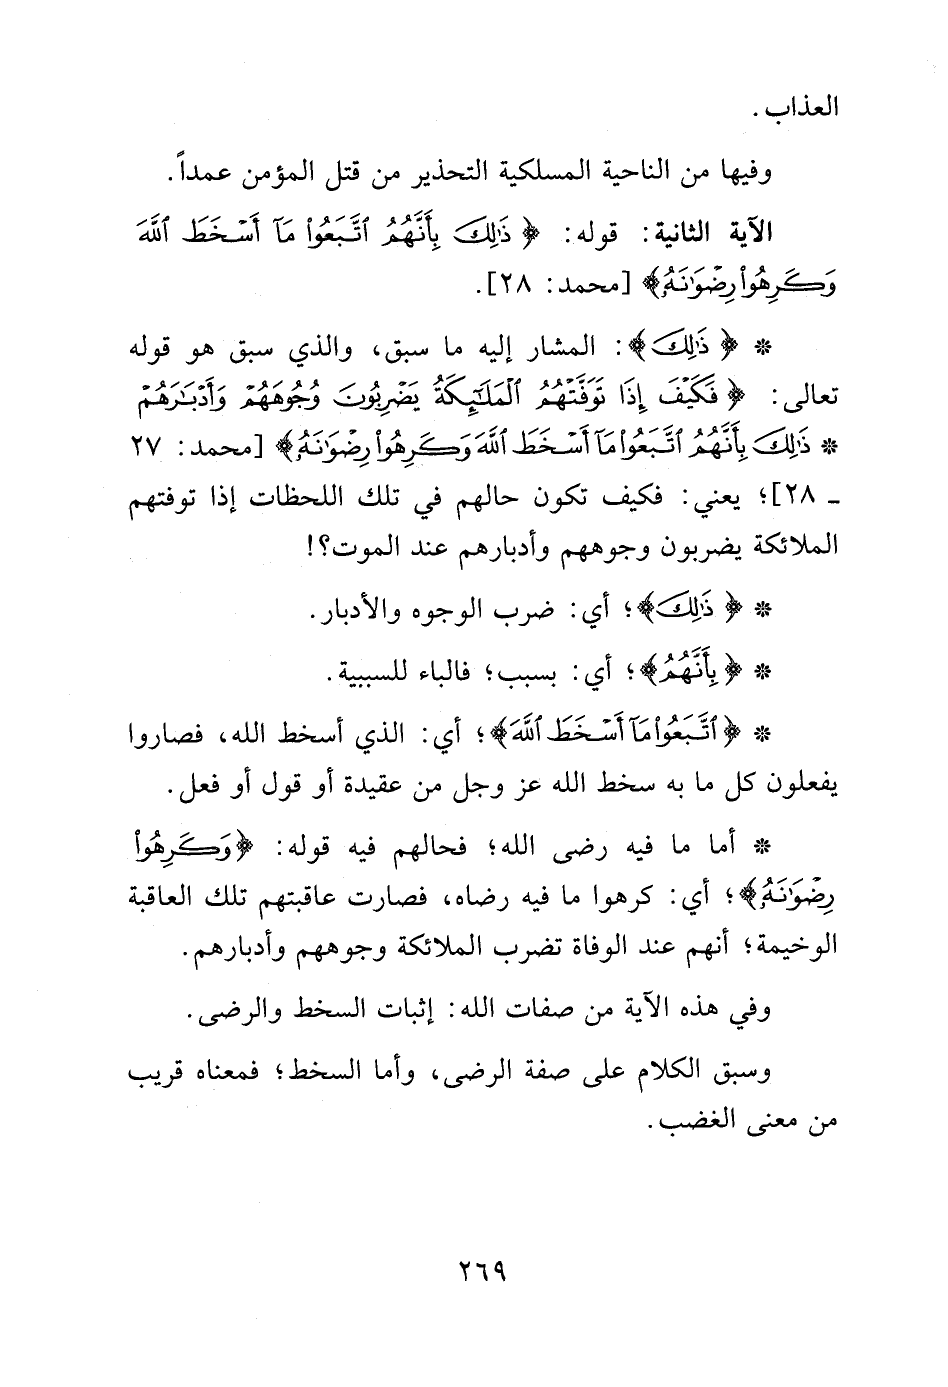 العذاب.
وفيها من الناحية المسلكية التحذير من قتل المؤمن عمداً.
الآية الثانية: قوله: ﴿ ذَٰلِكَ بِأَنَّهُمُ ٱتَّبَعُوا۟ مَآ أَسْخَطَ ٱللَّهَ
وَكَرِهُوا۟ رِضْوَٰنَهُۥ﴾ [محمد: ٢٨].
* ﴿ ذَٰلِكَ﴾: المشار إليه ما سبق، والذي سبق هو قوله
تعالى: ﴿ فَكَيْفَ إِذَا تَوَفَّتْهُمُ ٱلْمَلَٰٓئِكَةُ يَضْرِبُونَ وُجُوهَهُمْ وَأَدْبَٰرَهُمْ
* ذَٰلِكَ بِأَنَّهُمُ ٱتَّبَعُوا۟ مَآ أَسْخَطَ ٱللَّهَ وَكَرِهُوا۟ رِضْوَٰنَهُۥ﴾ [محمد: ٢٧
ـ ٢٨]؛ يعني: فكيف تكون حالهم في تلك اللحظات إذا توفتهم
الملائكة يضربون وجوههم وأدبارهم عند الموت؟!
* ﴿ ذَٰلِكَ﴾؛ أي: ضرب الوجوه والأدبار.
* ﴿ بِأَنَّهُمُ﴾؛ أي: بسبب؛ فالباء للسببية.
* ﴿ ٱتَّبَعُوا۟ مَآ أَسْخَطَ ٱللَّهَ﴾؛ أي: الذي أسخط الله، فصاروا
يفعلون كل ما به سخط الله عز وجل من عقيدة أو قول أو فعل.
* أما ما فيه رضى الله؛ فحالهم فيه قوله: ﴿وَكَرِهُوا۟
رِضْوَٰنَهُۥ﴾؛ أي: كرهوا ما فيه رضاه، فصارت عاقبتهم تلك العاقبة
الوخيمة؛ أنهم عند الوفاة تضرب الملائكة وجوههم وأدبارهم.
وفي هذه الآية من صفات الله: إثبات السخط والرضى.
وسبق الكلام على صفة الرضى، وأما السخط؛ فمعناه قريب
من معنى الغضب.
٢٦٩